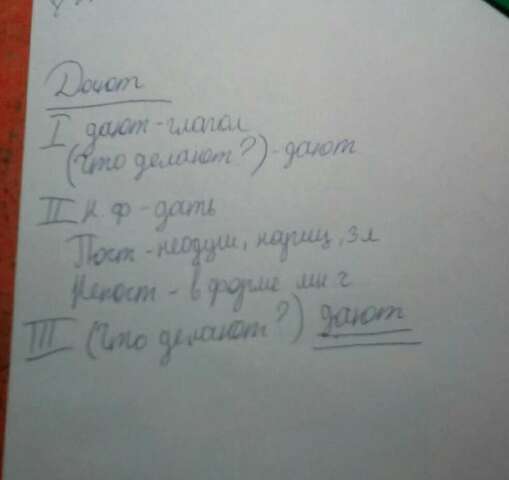 Дают
I дают-глагол
(Что делают?)-дают
II н.ф-дать
Пост-неодуш, нариц, 3 л
Непост-в форме мн ч
III (что делают?) дают